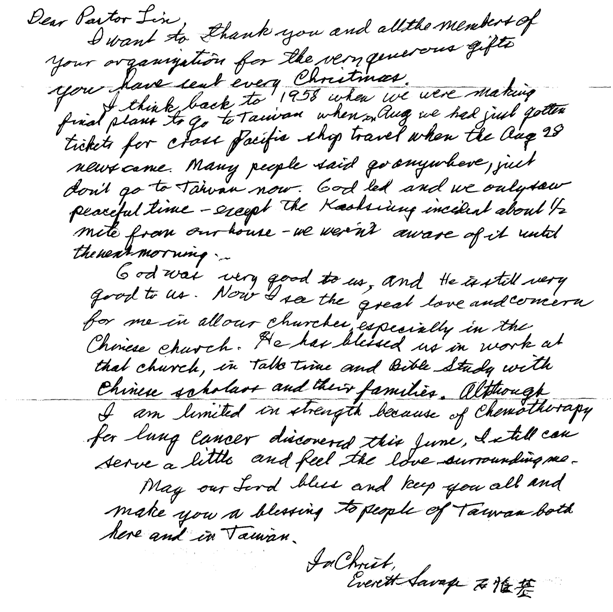 Dear Pastor Lin,
I want to thank you and all the members of
your organization for the very generous gifts
you have sent every Christmas.
I think back to 1958 when we were making
final plans to go to Taiwan when in Aug we had just gotten
tickets for cross Pacific ship travel when the Aug 28
news came. Many people said go anywhere, just
don't go to Taiwan now. God led and we only saw
peaceful time - except the Kaohsiung incident about 1/2
mile from our house - we weren't aware of it until
the next morning...
God was very good to us, and He is still very
good to us. Now I see the great love and concern
for me in all our churches, especially in the
Chinese church. He has blessed us in work at
that church, in Talk Time and Bible Study with
Chinese scholars and their families. Although
I am limited in strength because of Chemotherapy
for lung cancer discovered this June, I still can
serve a little and feel the love surrounding me.
May our Lord bless and keep you all and
make you a blessing to people of Taiwan both
here and in Taiwan.
In Christ,
Everett Savage